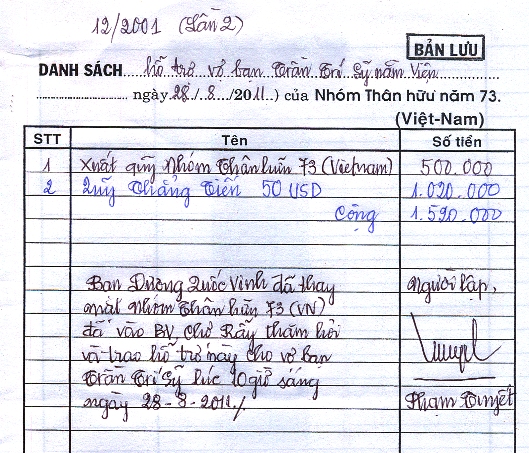 12/2001 (Lần 2)
BẢN LƯU
DANH SÁCH hỗ trợ vợ bạn Trần Trí Sỹ nằm Viện
ngày 28/8/2011) của Nhóm Thân hữu năm 73.
(Việt-Nam)
STT Tên Số tiền
1 Xuất quỹ Nhóm Thân hữu 73 (Vietnam) 500.000
2 Quỹ Thăng Tiến 50 USD 1.090.000
Cộng 1.590.000
Bạn Dương Quốc Vinh đã thay người lập,
mặt nhóm Thân hữu 73 (VN)
đã vào BV Chợ Rẫy thăm hỏi
và trao hỗ trợ này cho vợ bạn
Trần Trí Sỹ lúc 10giờ sáng
ngày 28-8-2011./ Phạm Tuyết